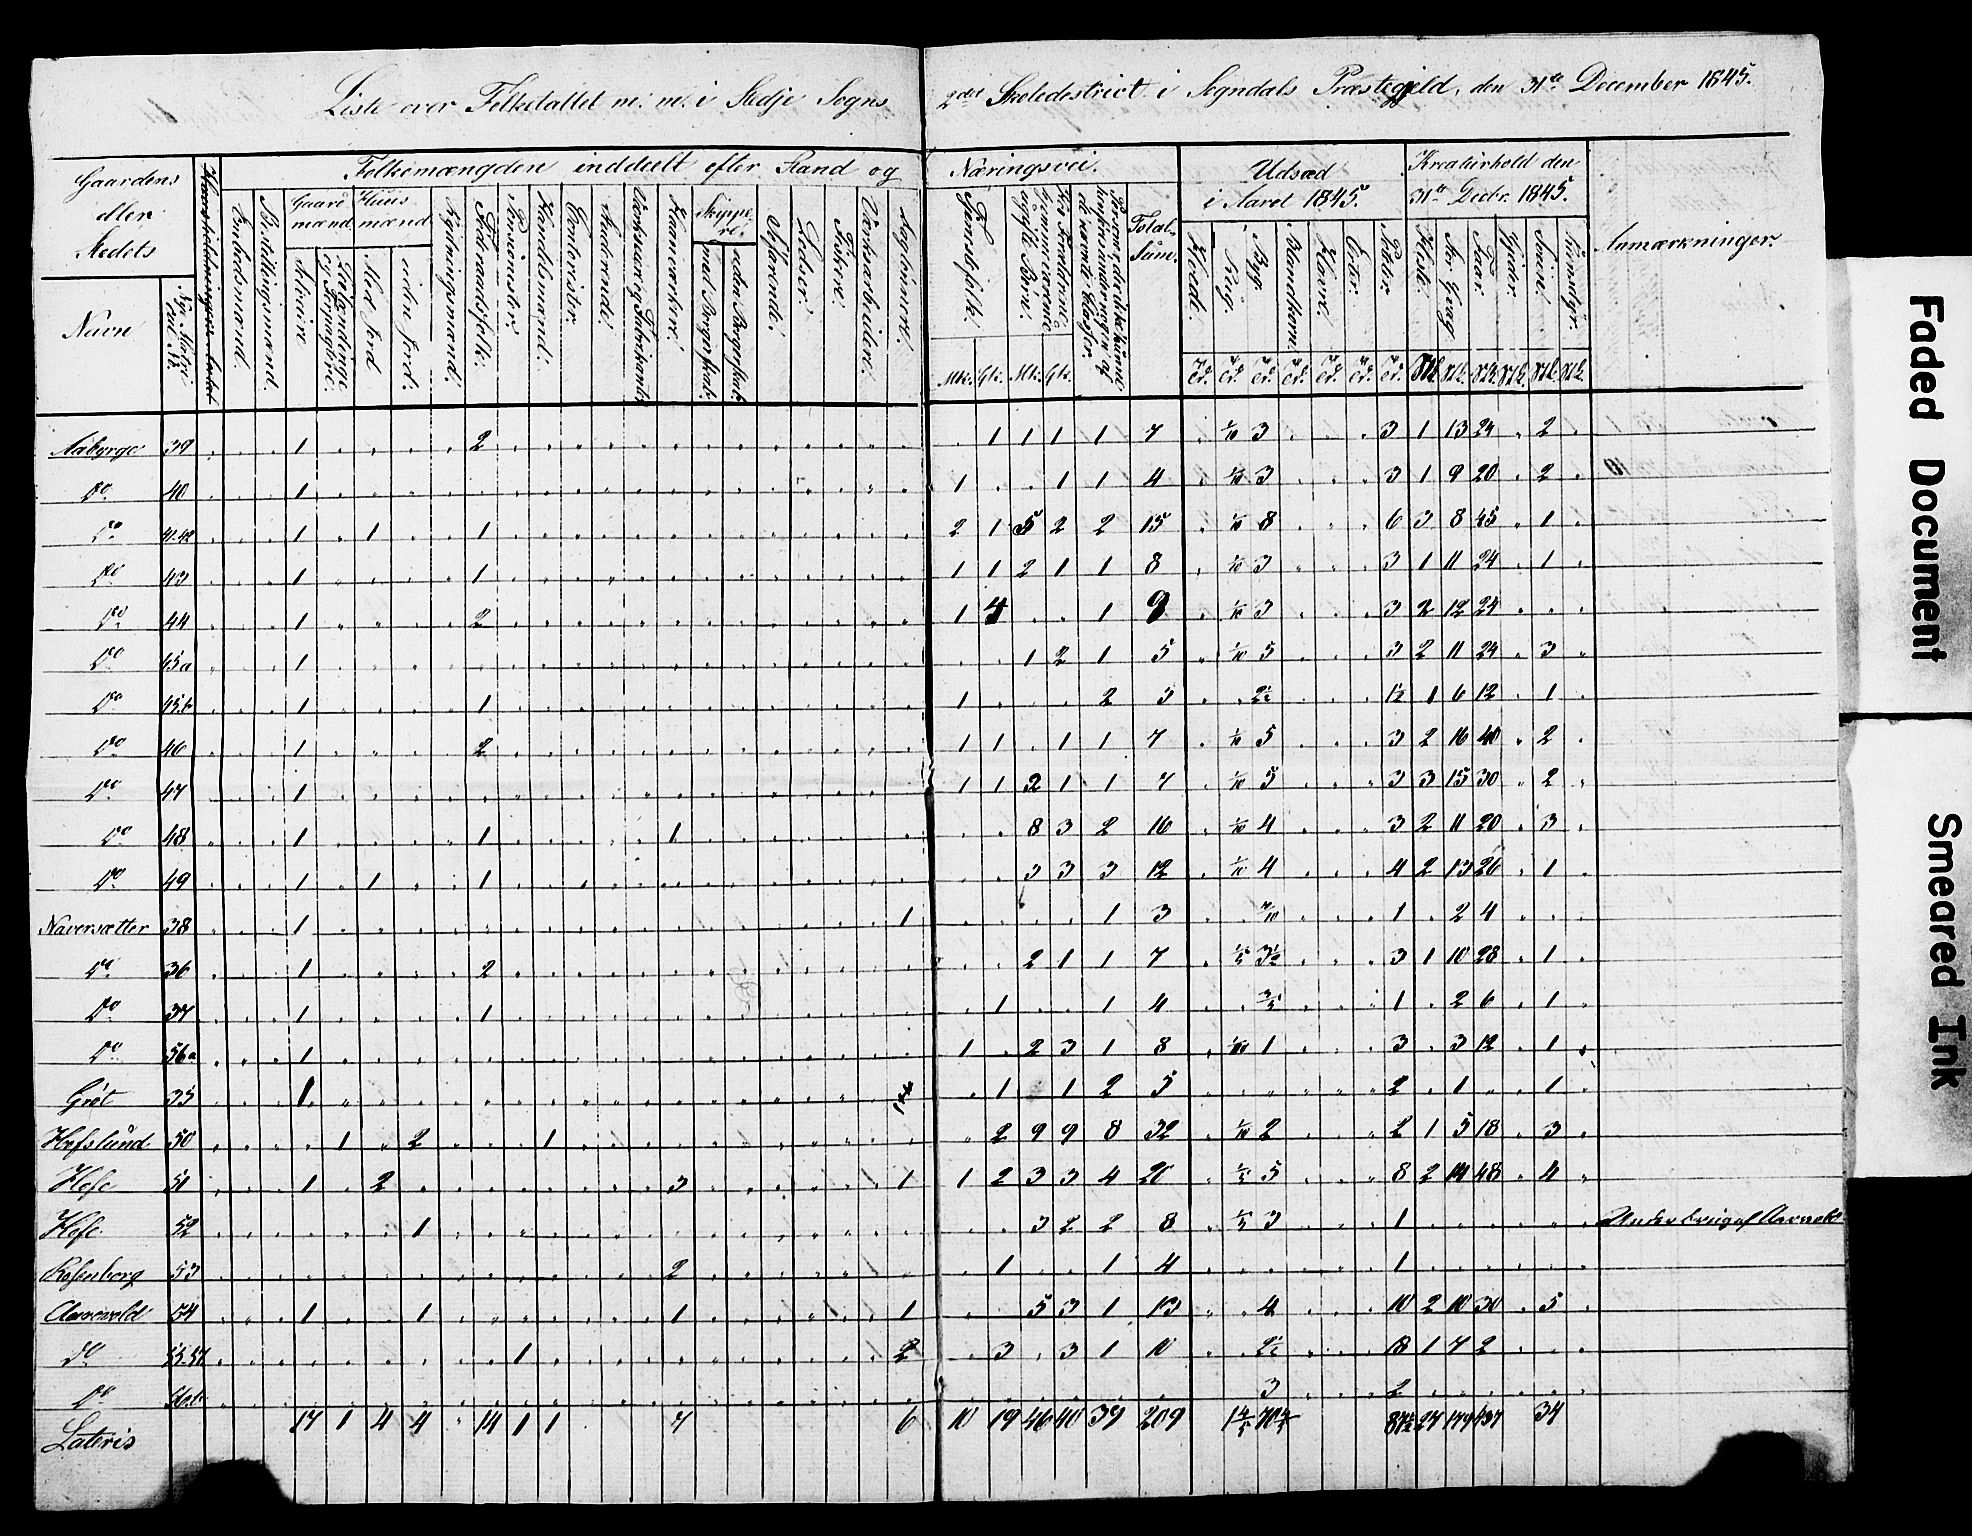 Liste over Folketallet m. m. i Stedje Sogns 2det Skoledestrict i Sogndals Præstegjeld, den 31te December 1845.
Gaardens eller Stedets
Navn
Huusholdningernes Antal
Folkemængden inddeelt efter Stand og Næringsvei.
Embedsmænd.
Bestillingsmænd.
Gaardmænd
Selveiere
Leilændinge og Forpagtere.
Huusmænd
Med Jord
uden Jord.
Rydningsmænd.
Føderaadsfolk.
Pensionister.
Handelsmænd.
Contorister.
Studerende.
Værkseiere og Fabrikanter
Haandværkere.
Skippere.
med Borgerskab.
uden Borgerskab.
Søfarende.
Lodser.
Fiskere.
Værksarbeidere.
Daglønnere.
Tjenestefolk.
Mk. Qk. Mk. Qk.
Total-Sum.
Udsæd i Aaret 1845.
Hvede.
Rug.
Byg.
Blandkorn.
Havre.
Erter.
Poteter.
Kreaturhold den 31te Decbr. 1845.
Heste.
Stor Qvæg
Faar
Gjeder.
Sviin.
Rensdyr.
Anmærkninger.
Aaberge 39 1 2 1 1 1 1 7 1/10 3 3 1 13 24 2
Do 40 1 1 1 1 4 1/10 3 3 1 9 20 2
Do 41.42 1 1 1 2 1 5 2 2 15 1/10 8 6 3 8 45 1
Do 43 1 1 1 1 2 1 1 8 1/10 3 3 1 11 24 1
Do 44 1 2 1 4 1 9 1/10 3 3 2 12 24
Do 45a 1 1 2 1 5 1/10 5 3 2 11 24 3
Do 45.b 1 1 1 2 3 2½ 1½ 1 6 12 1
Do 46 1 2 1 1 1 1 7 1/10 5 3 2 16 40 2
Do 47 1 1 1 2 1 1 7 1/10 5 3 3 15 30 2
Do 48 1 1 1 8 3 2 16 1/10 4 3 2 11 20 3
Do 49 1 1 1 3 3 3 12 1/10 4 4 2 13 26 1
Naversætter 38 1 1 1 3 7/10 1 2 4
Do 36 1 2 2 1 1 7 1/5 3½ 3 1 10 28 1
Do 37 1 1 1 1 4 3/5 1 2 6 1
Do 56a 1 1 2 3 1 8 1/10 1 3 3 12 1
Grøt 35 1 1 1 2 5 2 1 1
Hofslund 50 1 2 1 2 9 9 8 32 1/10 2 2 1 5 18 3
Hofe 51 1 2 3 1 1 2 3 3 4 20 1/5 5 8 2 14 48 4
Hofe 52 1 3 2 2 8 1/5 3 1 Underbrug af
Rosenborg 53 2 1 1 4 1
Aarevold 54 1 1 1 1 5 3 1 13 4 10 2 10 30 5
Do 55.57 1 2 3 3 1 10 2½ 8 1 7 2
Do 56.b 3 2
Lateris 17 1 4 4 14 1 1 7 6 10 19 46 40 39 209 87½ 27 179 437 34
Faded Document
Smeared Ink